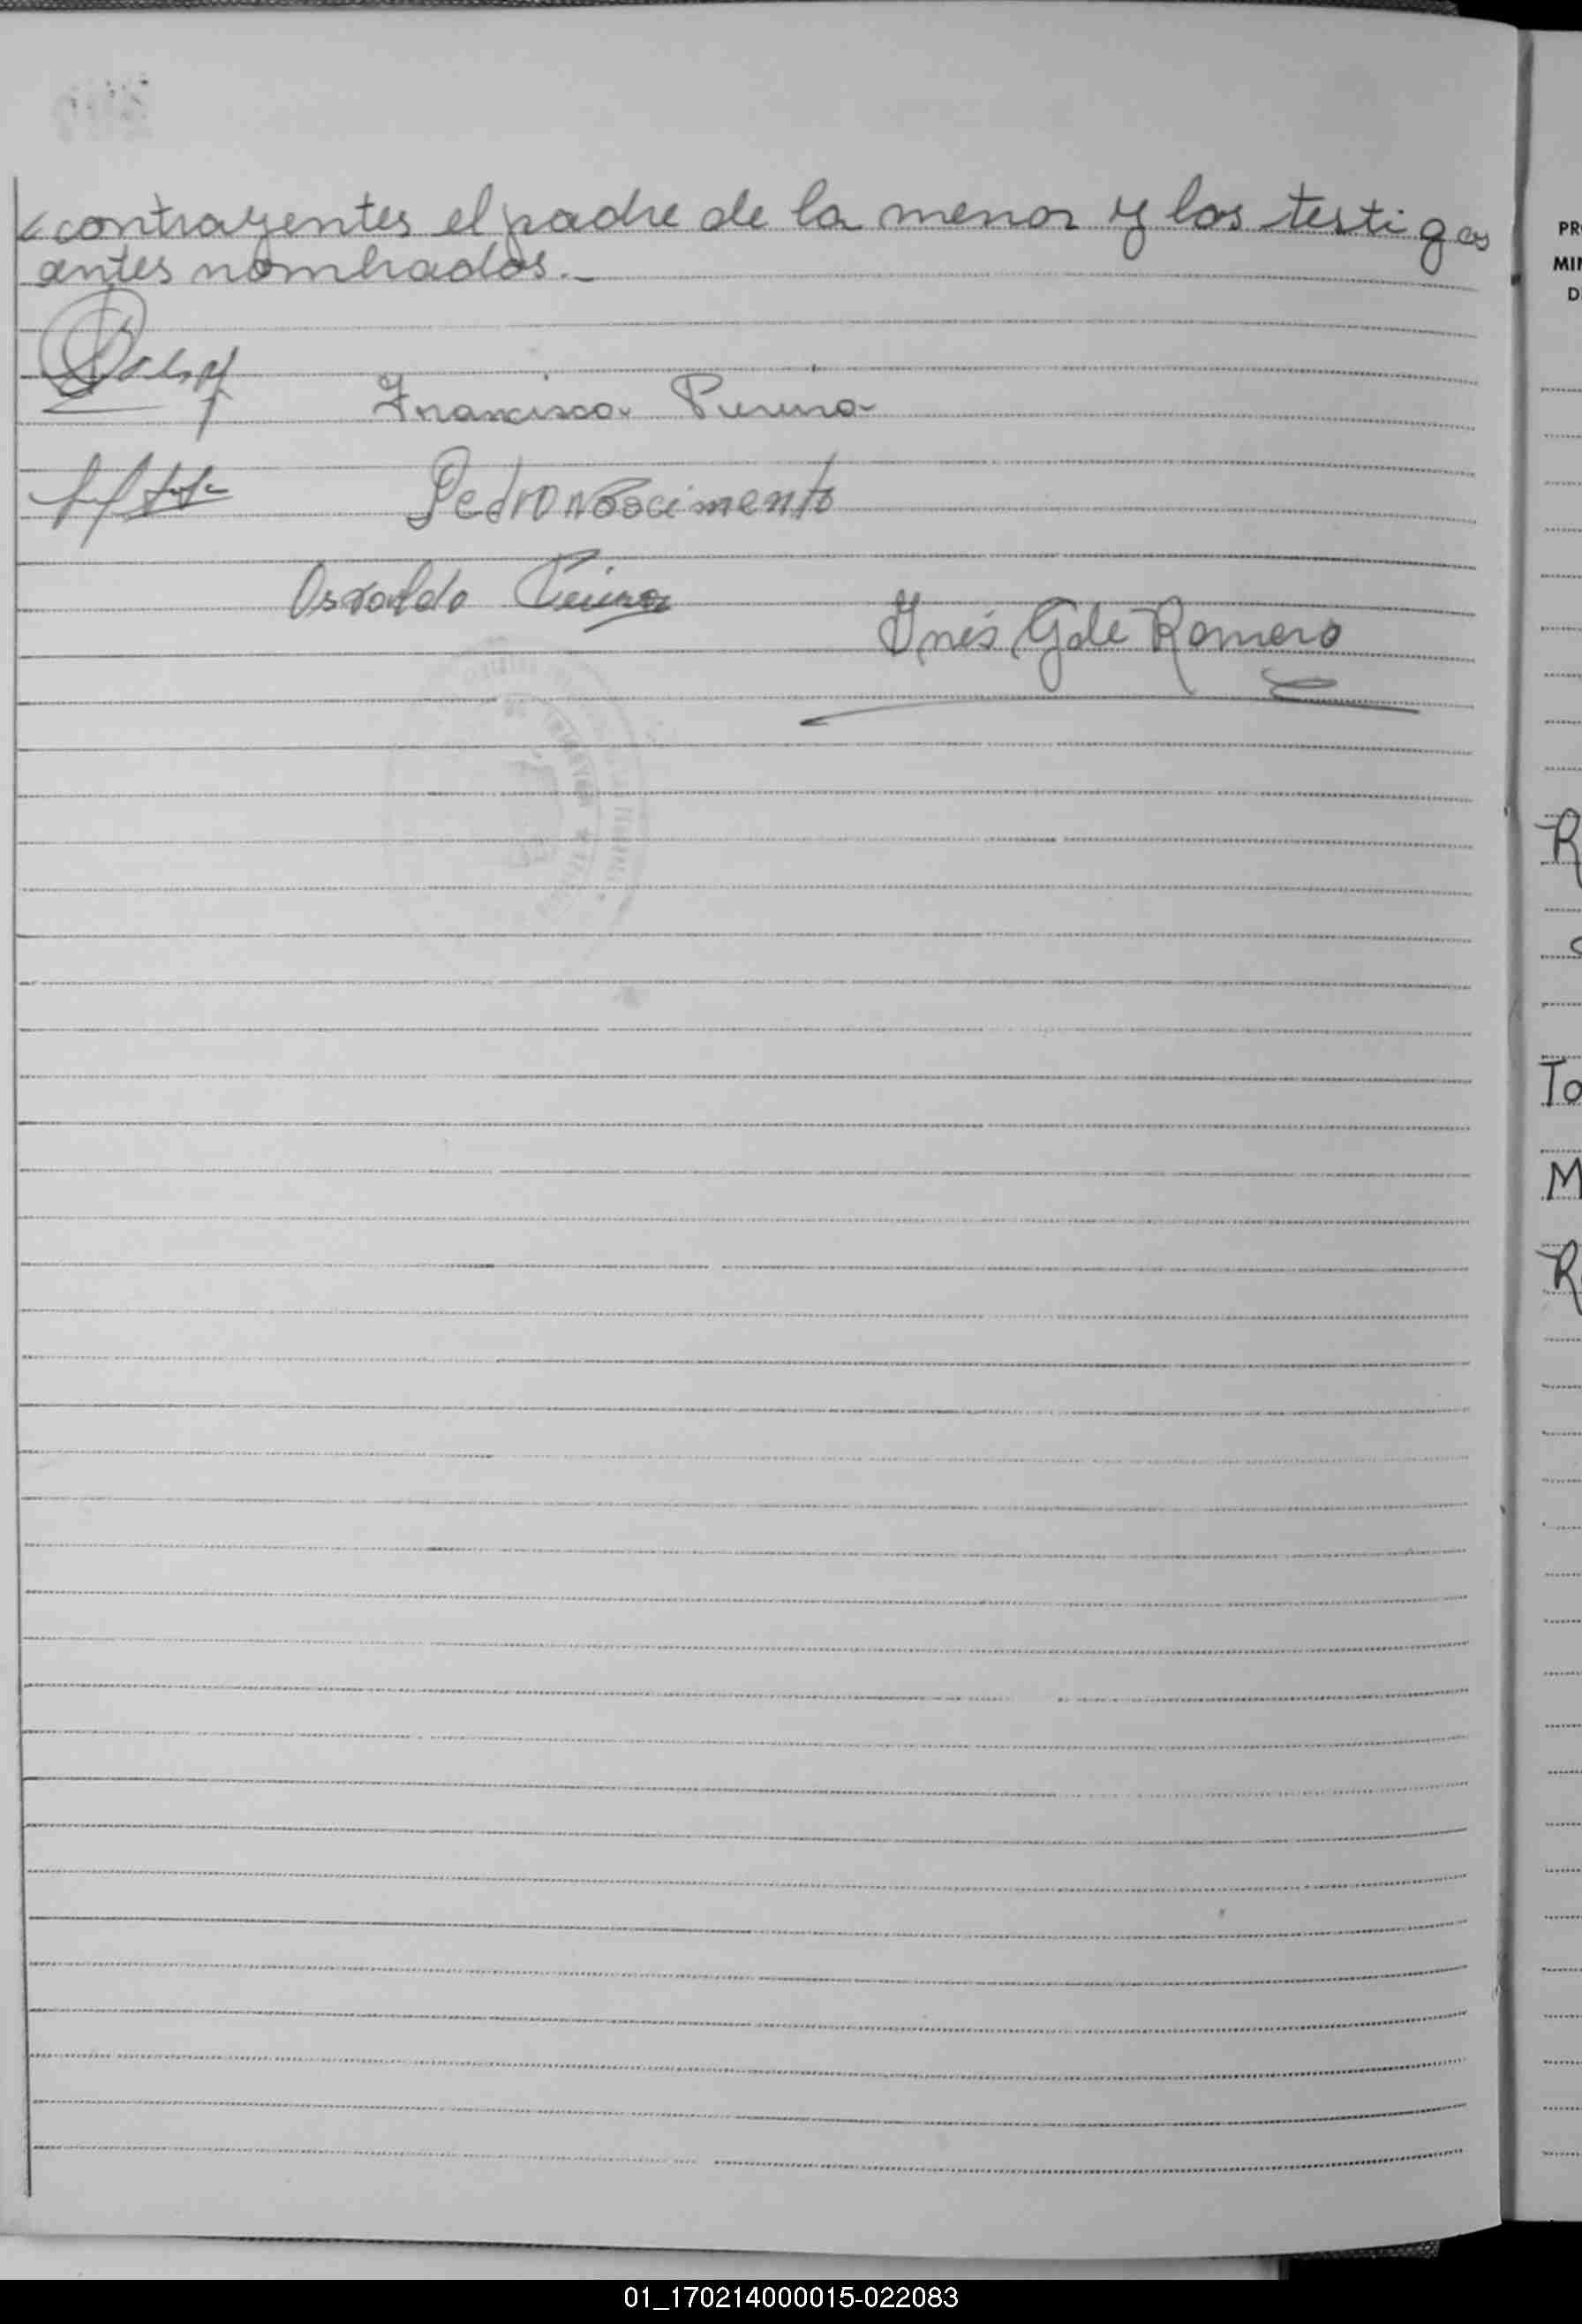 contrayentes el padre de la menor y los testigos
antes nombrados.-
Francisca
Pedro nascimento
Osvaldo
Inés G de Romero
PR
MIN
D
R
To
M
R
01_170214000015-022083